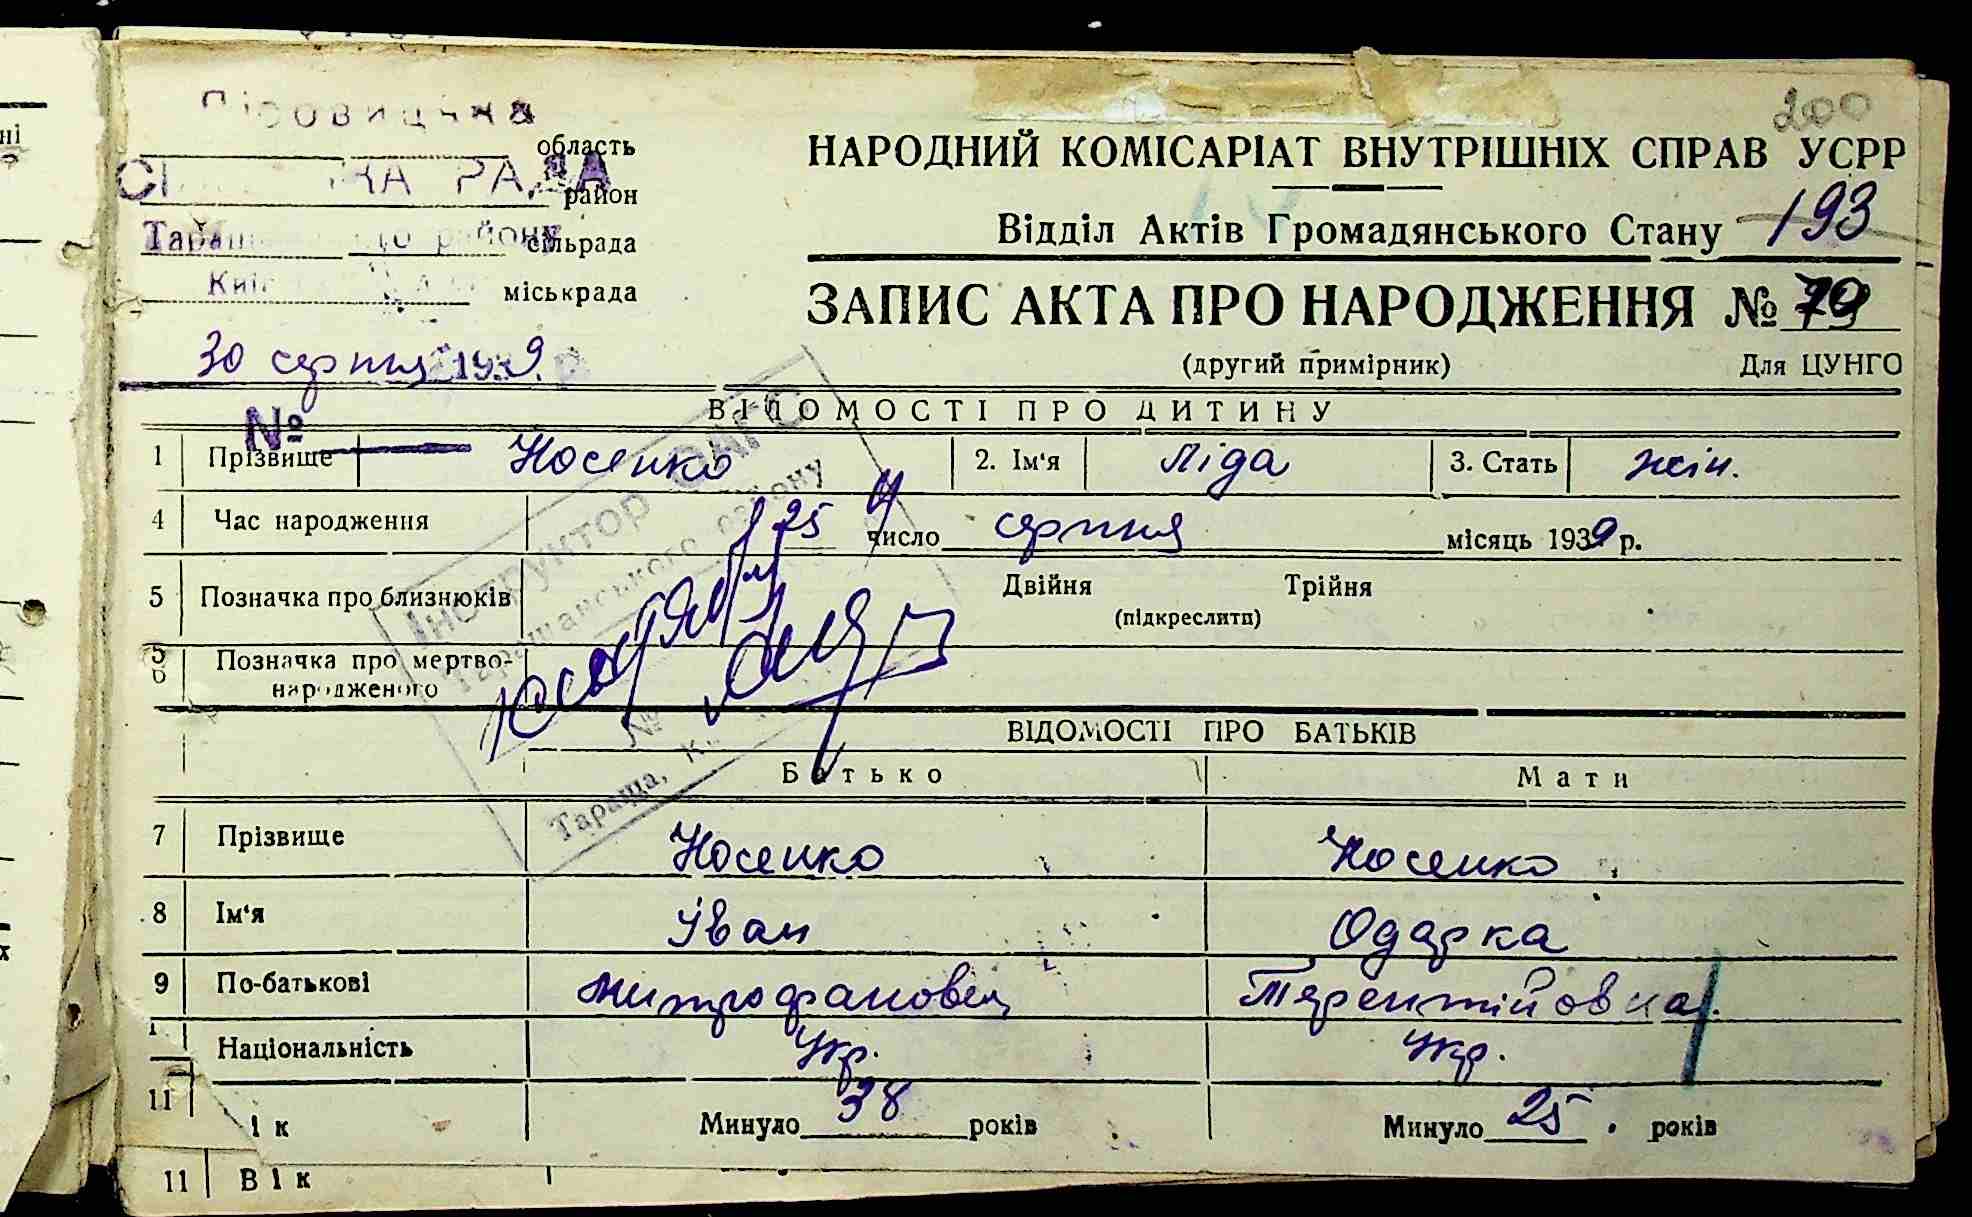 200
область
СІ КА РАДА
район
сільрада
міськрада
30 серпня 1939
№
НАРОДНИЙ КОМІСАРІАТ ВНУТРІШНІХ СПРАВ УСРР
Відділ Актів Громадянського Стану 193
ЗАПИС АКТА ПРО НАРОДЖЕННЯ № 79
(другий примірник) Для ЦУНГО
ВІДОМОСТІ ПРО ДИТИНУ
1 Прізвище Носенко 2. Ім'я Ліда 3. Стать жін.
4 Час народження 25 число серпня місяць 1939 р.
5 Позначка про близнюків Двійня Трійня
(підкреслити)
6 Позначка про мертво-
народженого
Інструктор ОАГС
Таращанського району
№
Тараща, К
ВІДОМОСТІ ПРО БАТЬКІВ
Батько Мати
7 Прізвище Носенко Носенко
8 Ім'я Іван Одарка
9 По-батькові Митрофанович Терентійовна
Національність Укр. Укр.
11 ік Минуло 38 років Минуло 25 років
11 Вік